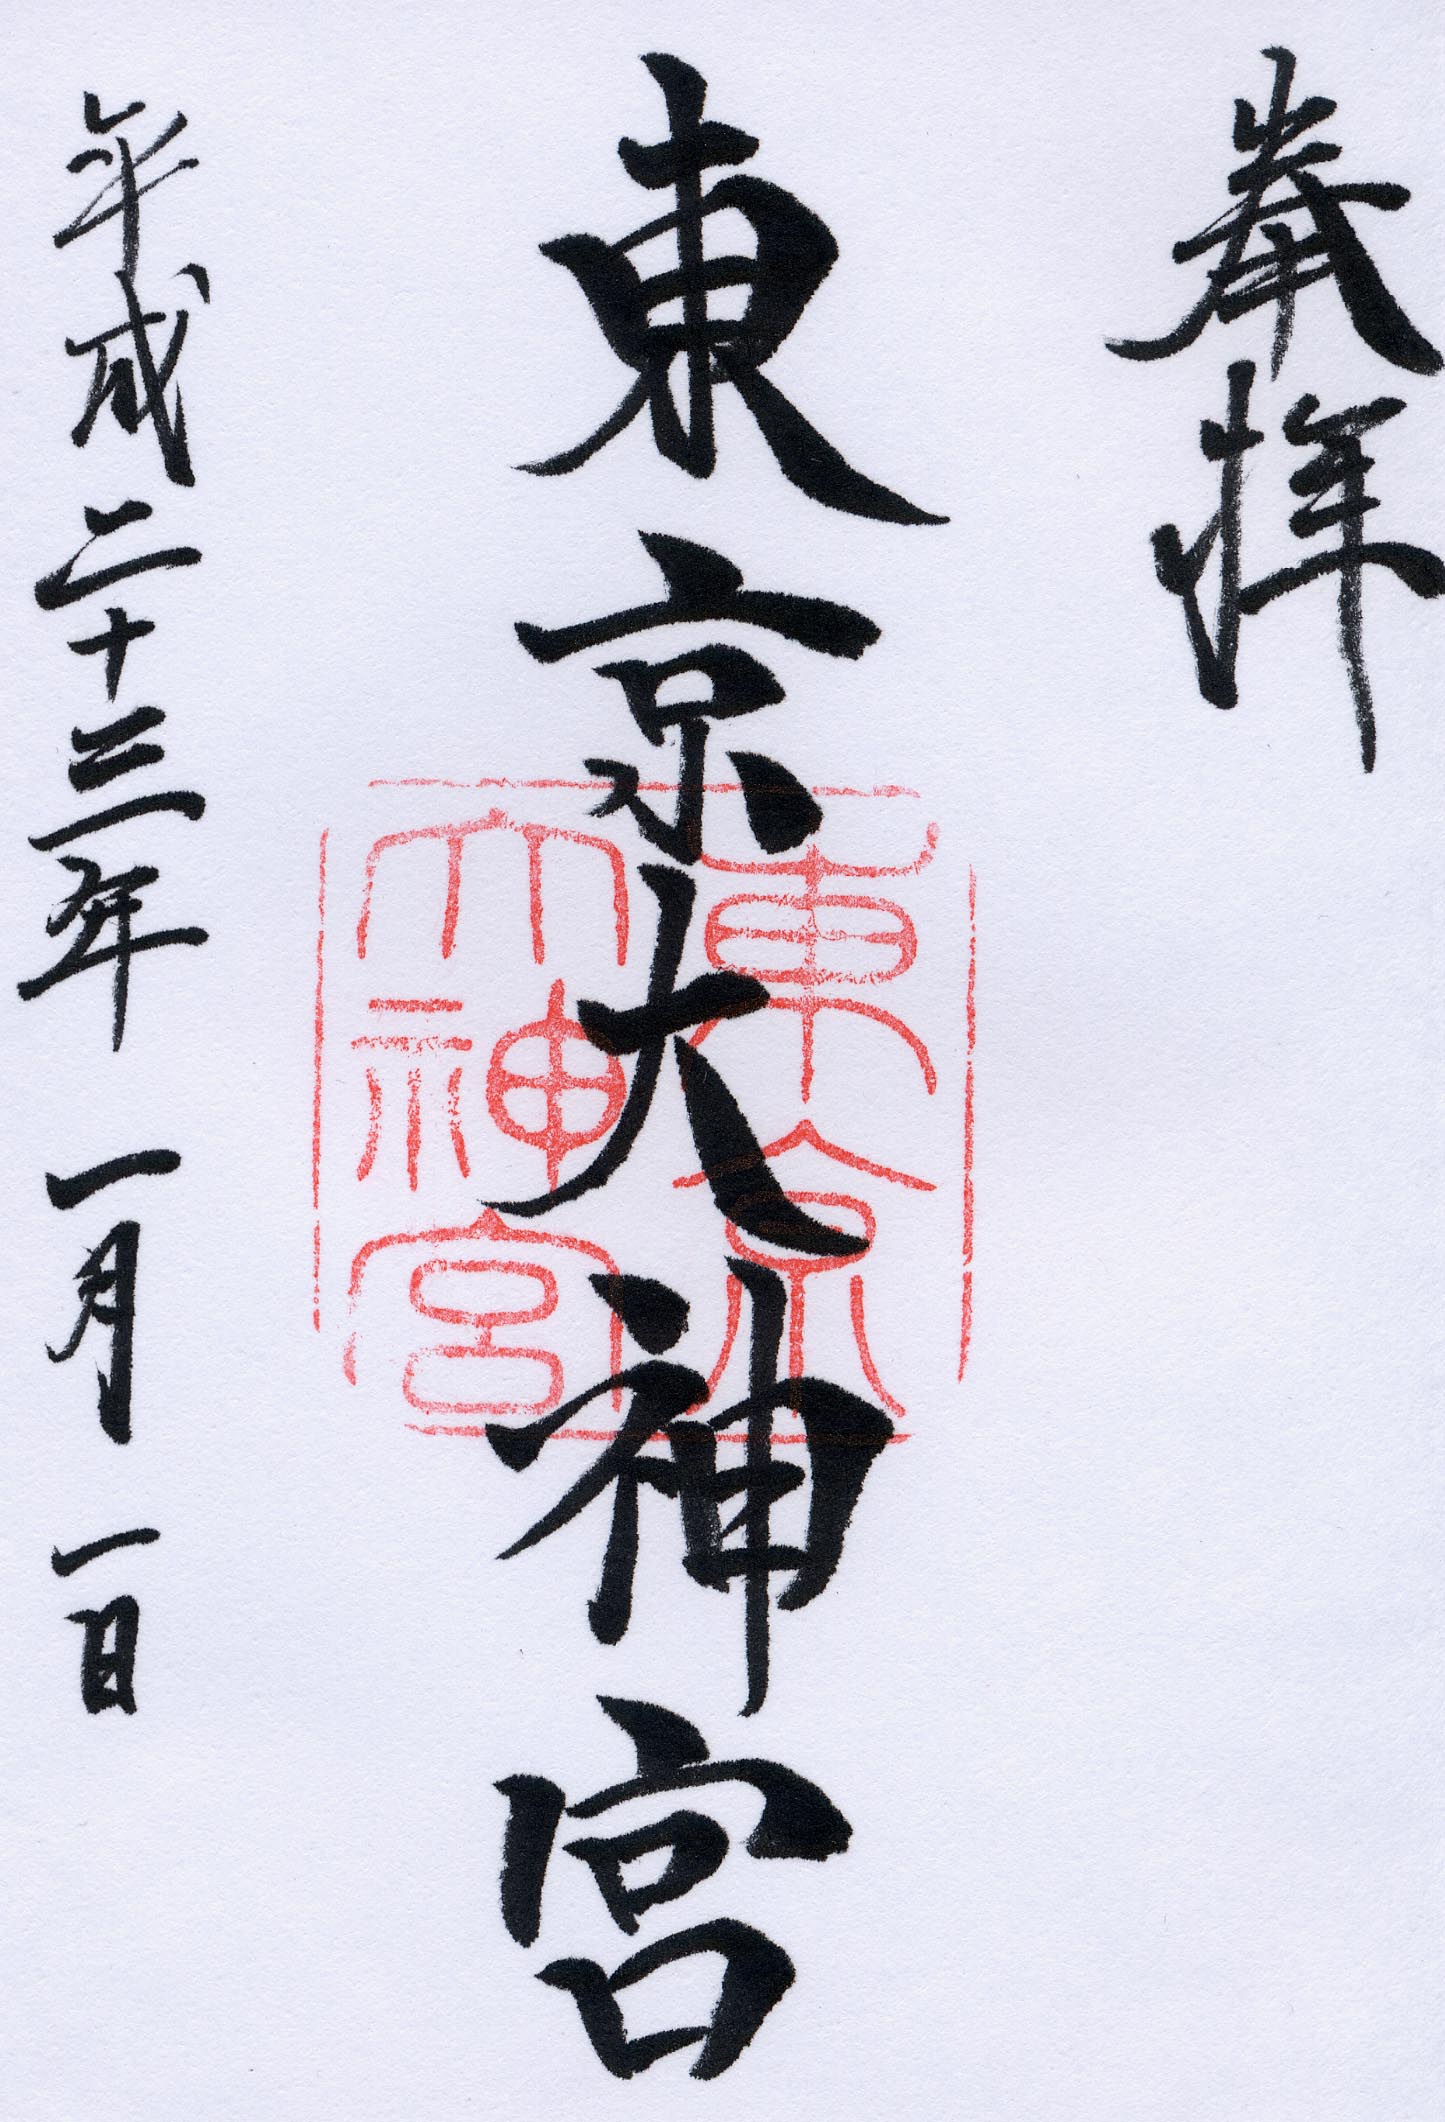 奉拝
東京大神宮
東京
大神宮
平成二十三年 一月 一日